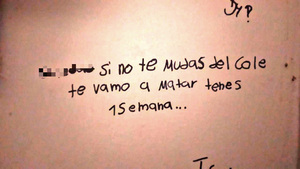 si no te Mudas del cole
te vamo a Matar tenes
1 semana...